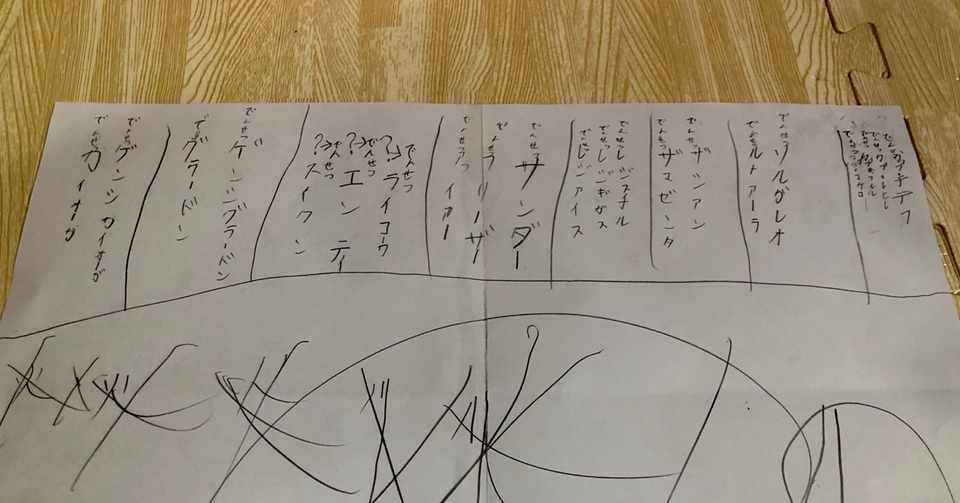 でんせつソルガレオ
でんせつルナアーラ
でんせつザシアン
でんせつザマゼンタ
でんせつレジスチル
でんせつレジギガス
でんせつレジアイス
でんせつサンダー
でんせつフリーザー
でんせつ
でんせつライコウ
でんせつエンテイ
でんせつスイクン
でんせつゲンシグラードン
でんせつグラードン
でんせつゲンシカイオーガ
でんせつカイオーガ